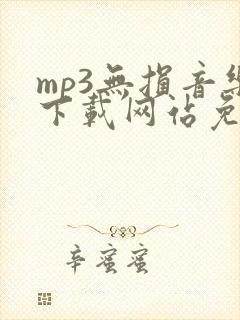 mp3無损音樂
下载网站免
辛蜜蜜